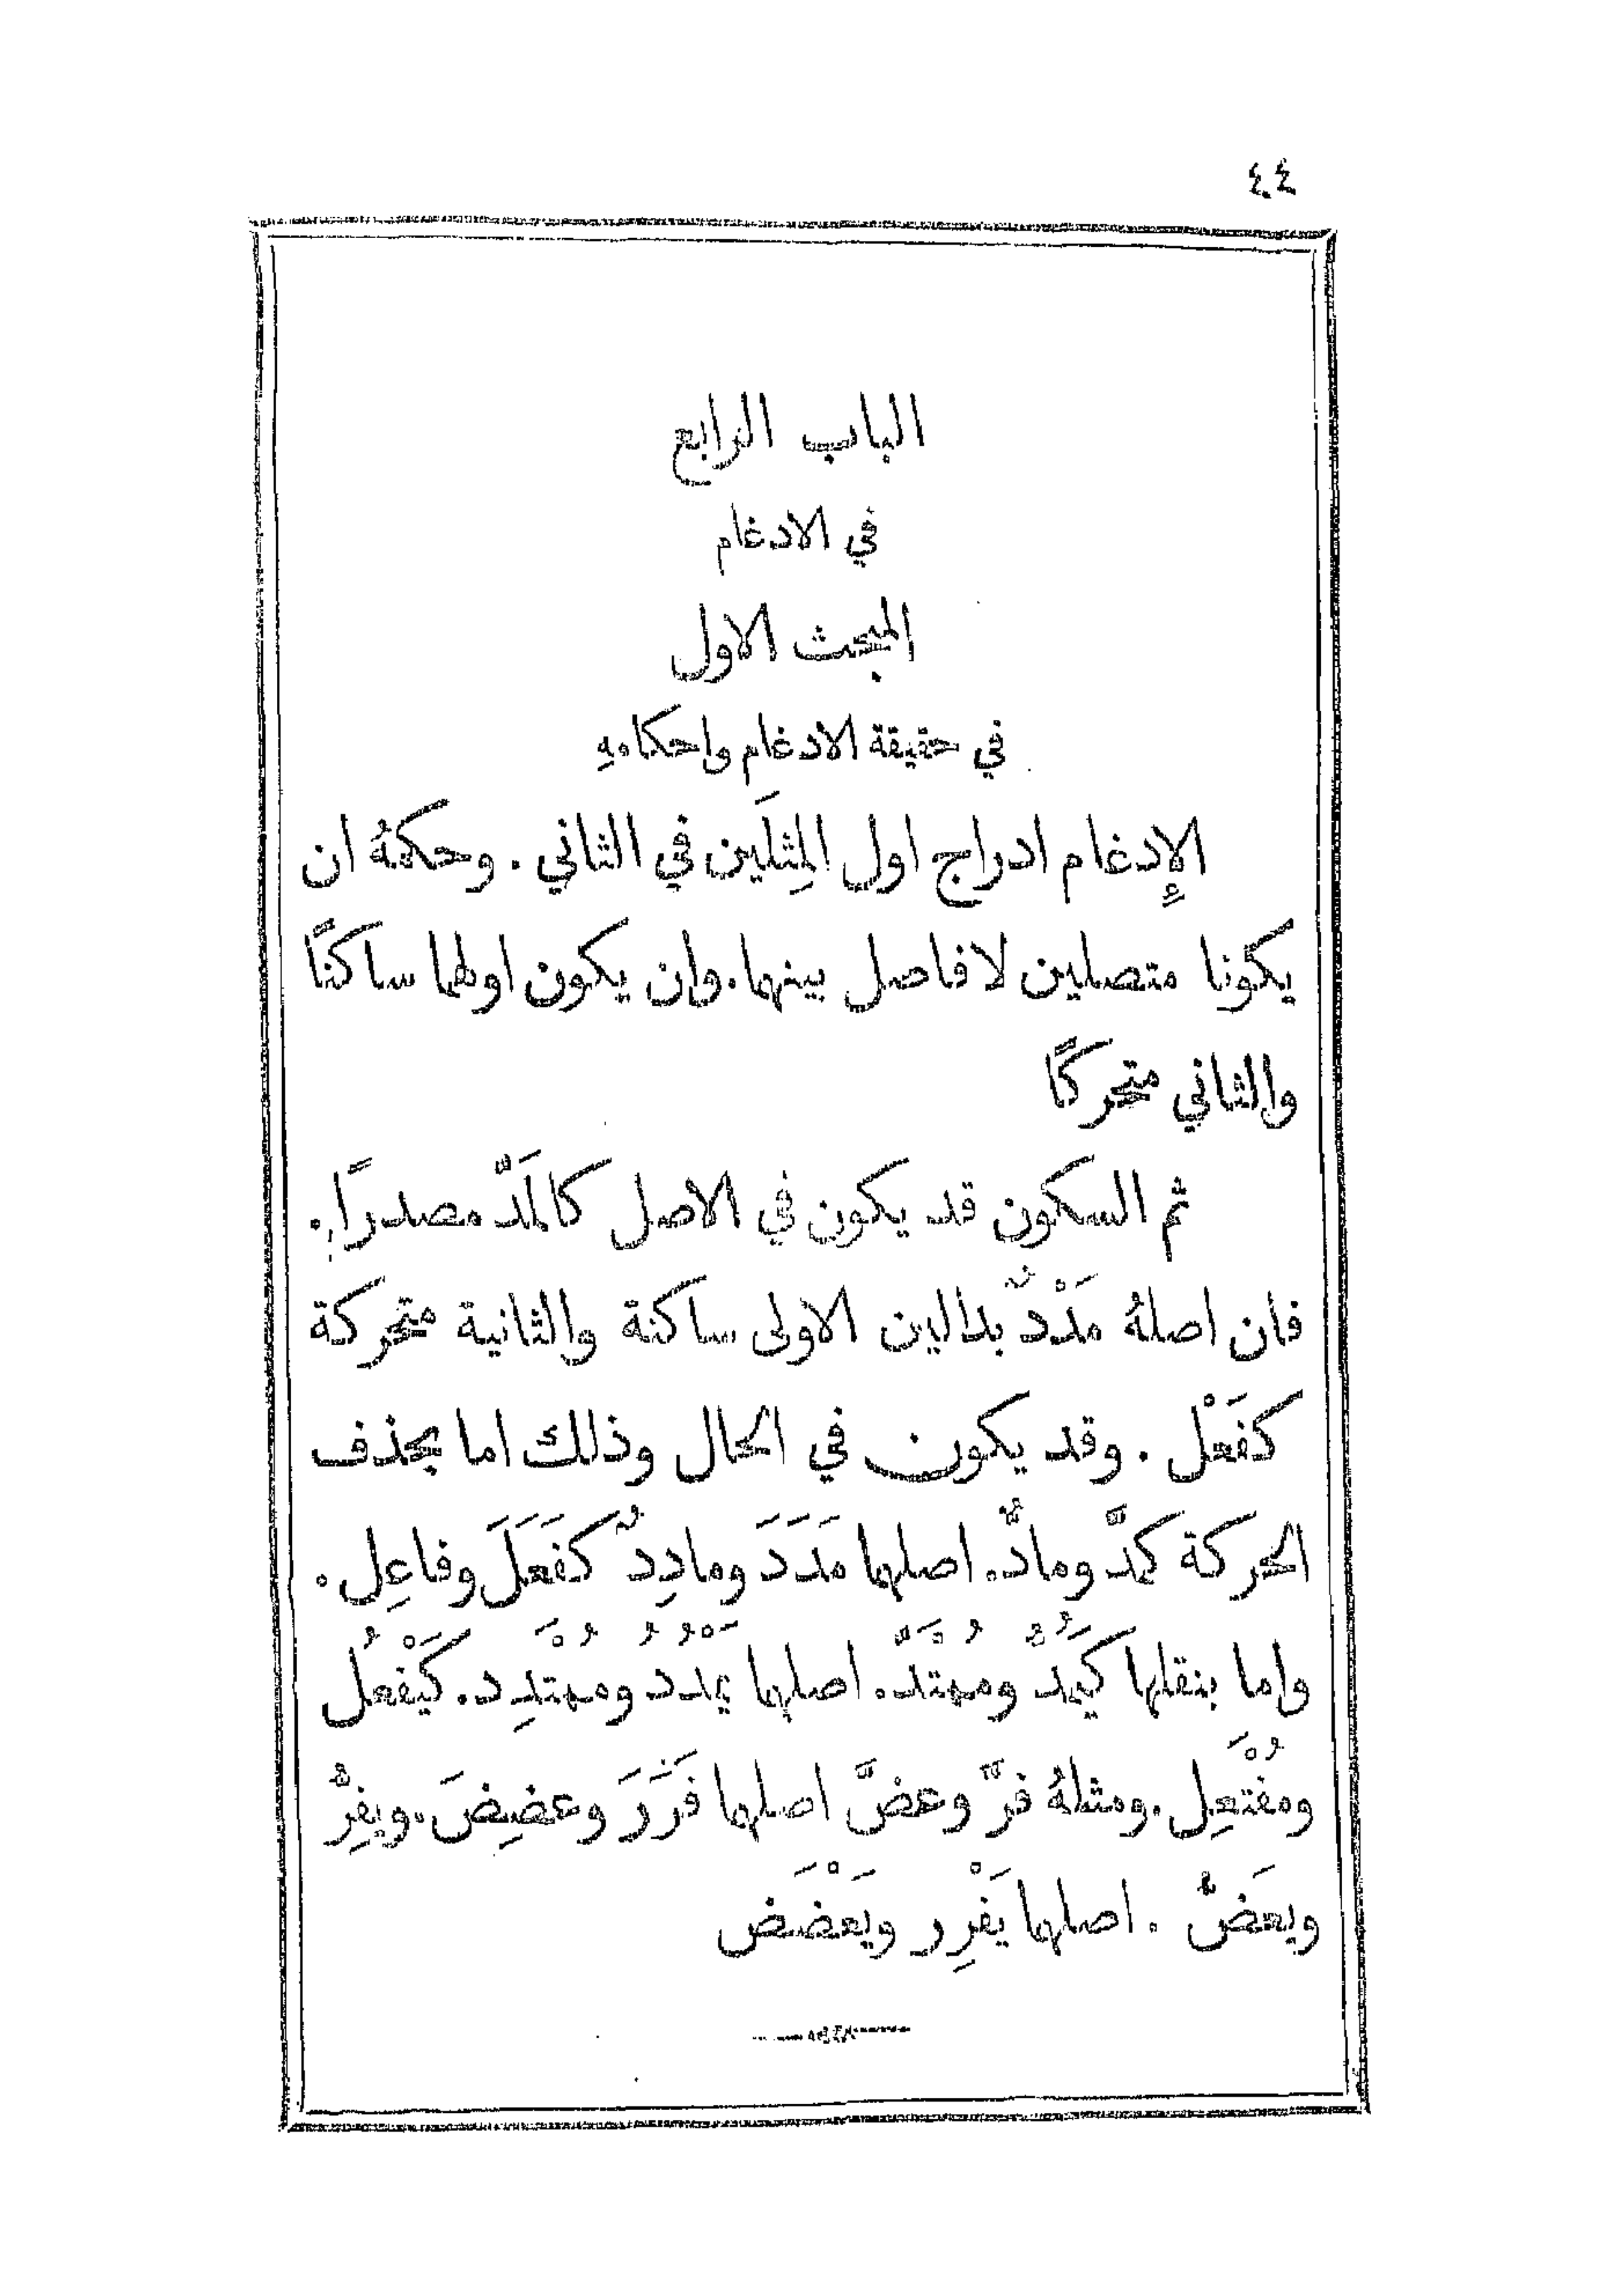 ٤٤
الباب الرابع
في الادغام
المبحث الاول
في حقيقة الادغام واحكامهِ
الإِدغام ادراج اول المِثلَين في الثاني . وحكمهُ ان
يكونا متصلين لا فاصل بينهما . وان يكون اولهما ساكنًا
والثاني متحركًا
ثم السكون قد يكون في الاصل كالمَدّ مصدرًا .
فان اصلهُ مَدْدٌ بدالين الاولى ساكنة والثانية متحركة
كفَعْل . وقد يكون في الحال وذلك اما بحذف
الحركة كمدَّ ومادٌّ . اصلهما مَدَدَ ومادِدٌ كفَعَلَ وفاعِل .
واما بنقلها كَيَمُدُّ ومُمْتَدّ . اصلهما يَمْدُدُ ومُمْتَدِد . كَيَفْعُل
ومُفْتَعِل . ومثلهُ فرَّ وعضَّ اصلهما فَرَرَ وعضِضَ . ويفِرُّ
ويعَضُّ . اصلهما يَفْرِر ويَعْضَض